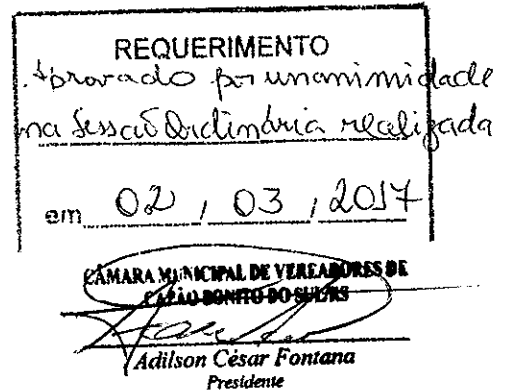 REQUERIMENTO
Aprovado por unanimidade
na Sessão Ordinária realizada
em 02 / 03 / 2017
CÂMARA MUNICIPAL DE VEREADORES DE
CAPÃO BONITO DO SUL/RS
Adilson César Fontana
Presidente